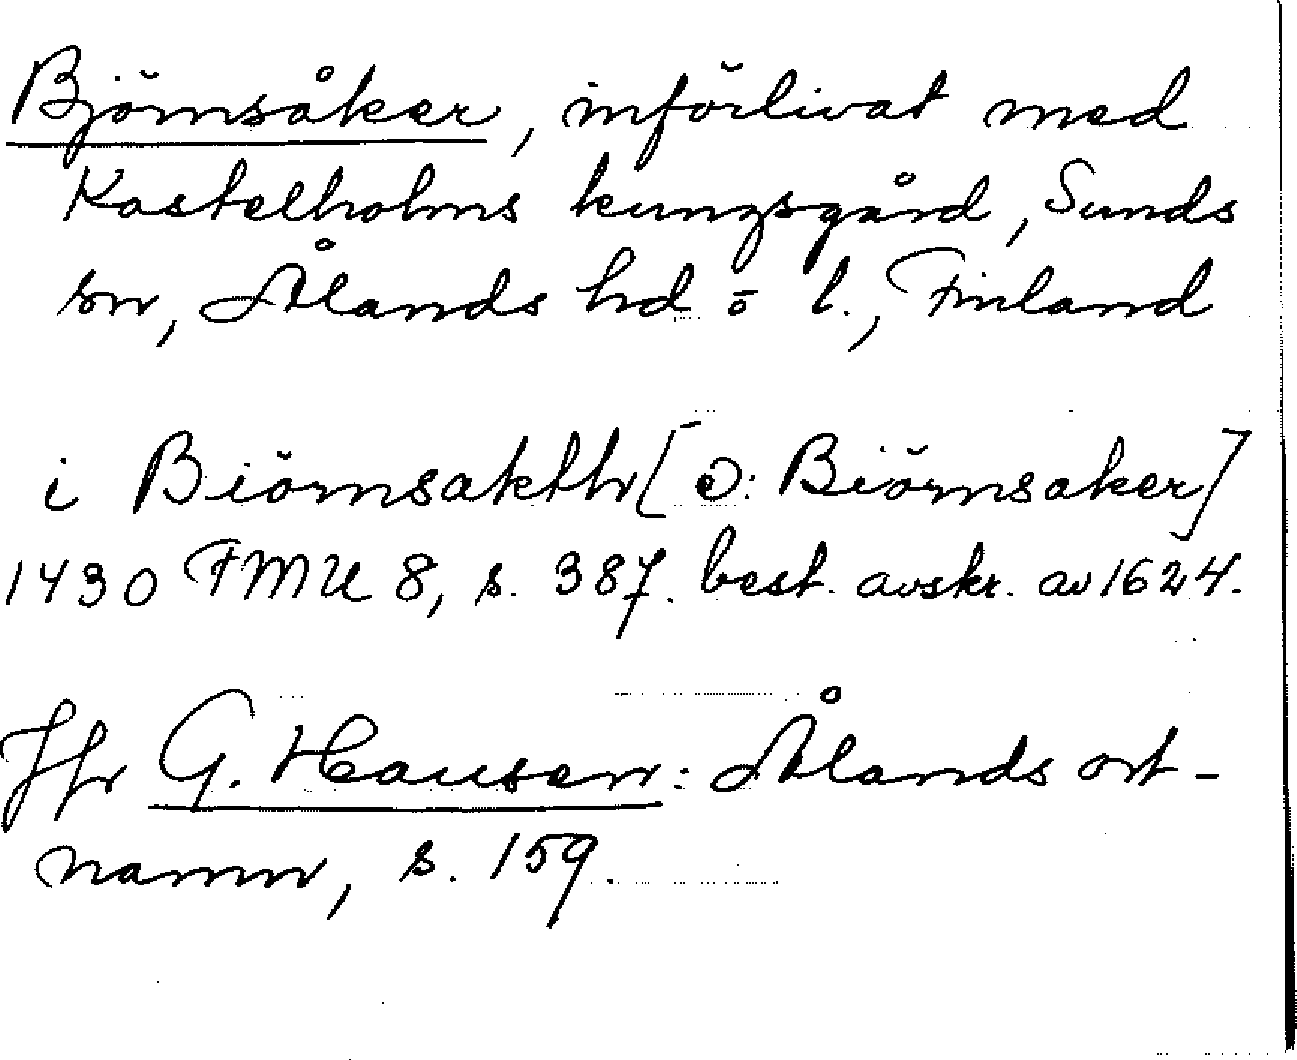 Björnsåker, införlivat med
Kastelholms kungsgård, Sunds
sn, Ålands hd o l., Finland
i Biörnsakthr [ɔ: Biörnsaker]
1430 FMU 8, s. 387. best. avskr. av 1624.
Jfr G. Hausen: Ålands ort-
namn, s. 159.